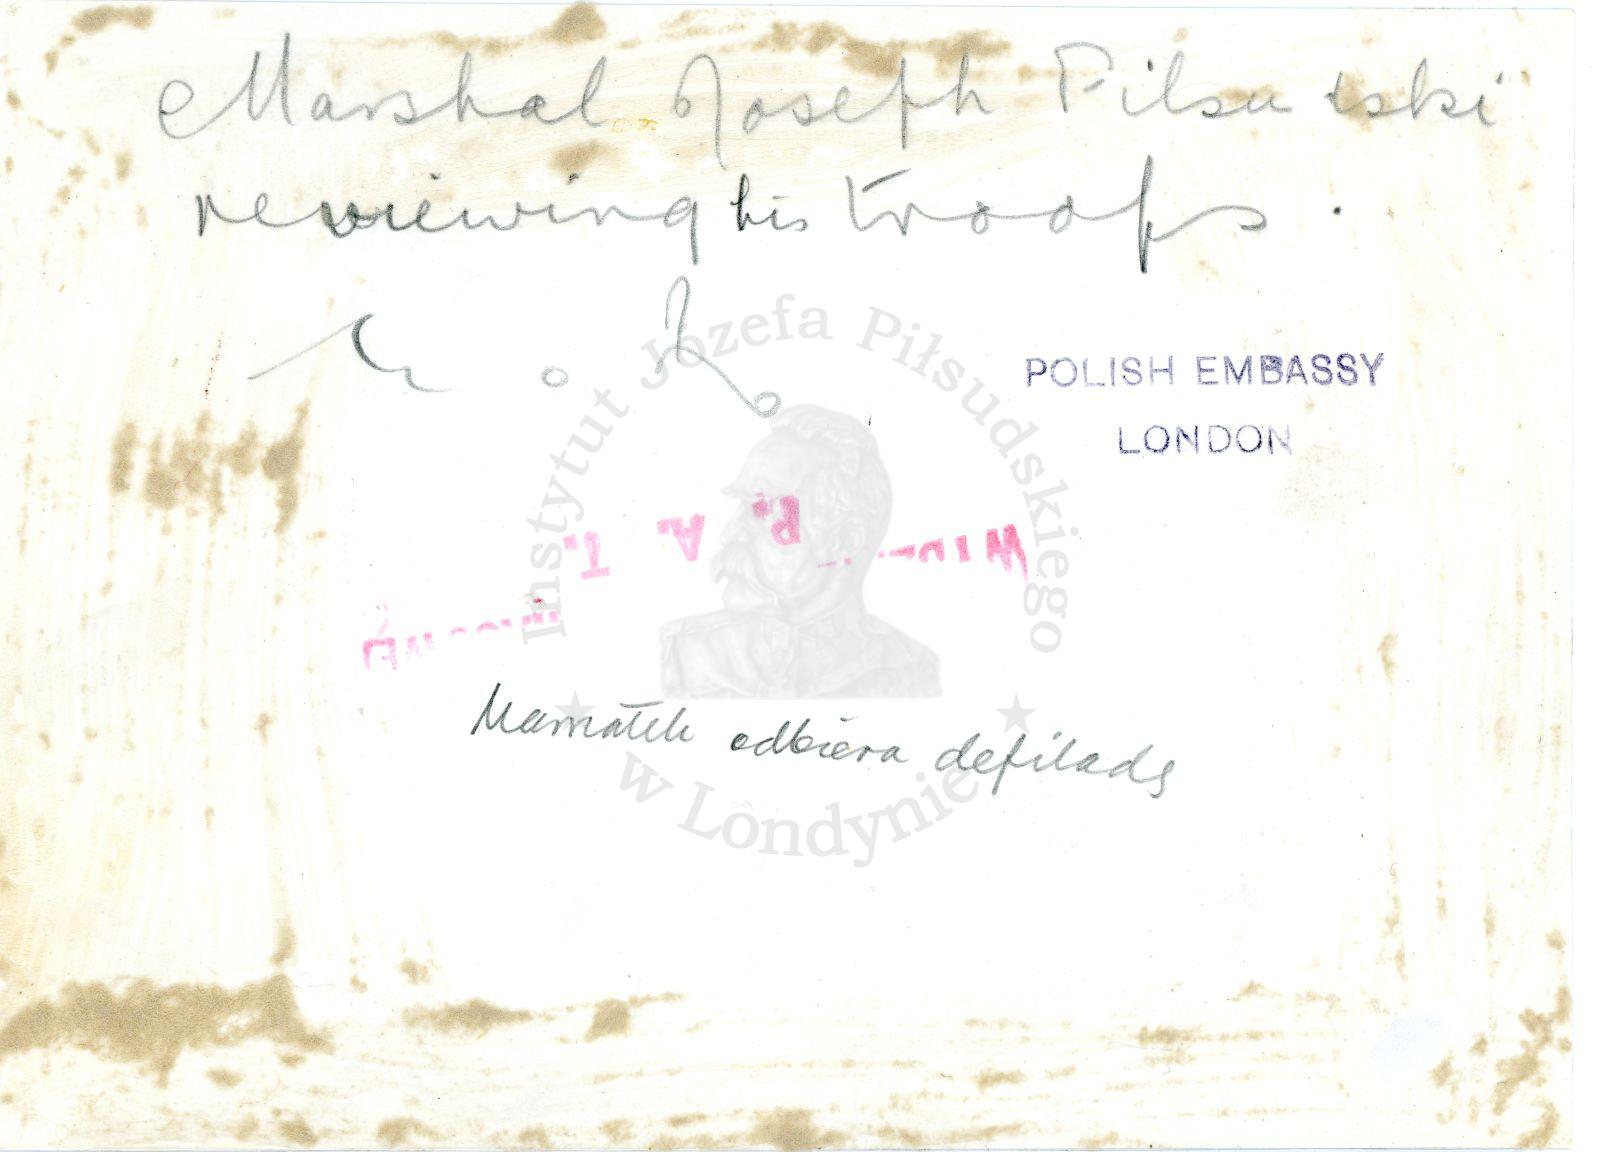 Marshal Joseph Pilsudski
reviewing his troops.
POLISH EMBASSY
LONDON
Instytut Józefa Piłsudskiego
w Londynie
P. A. T.
odbiera defiladę